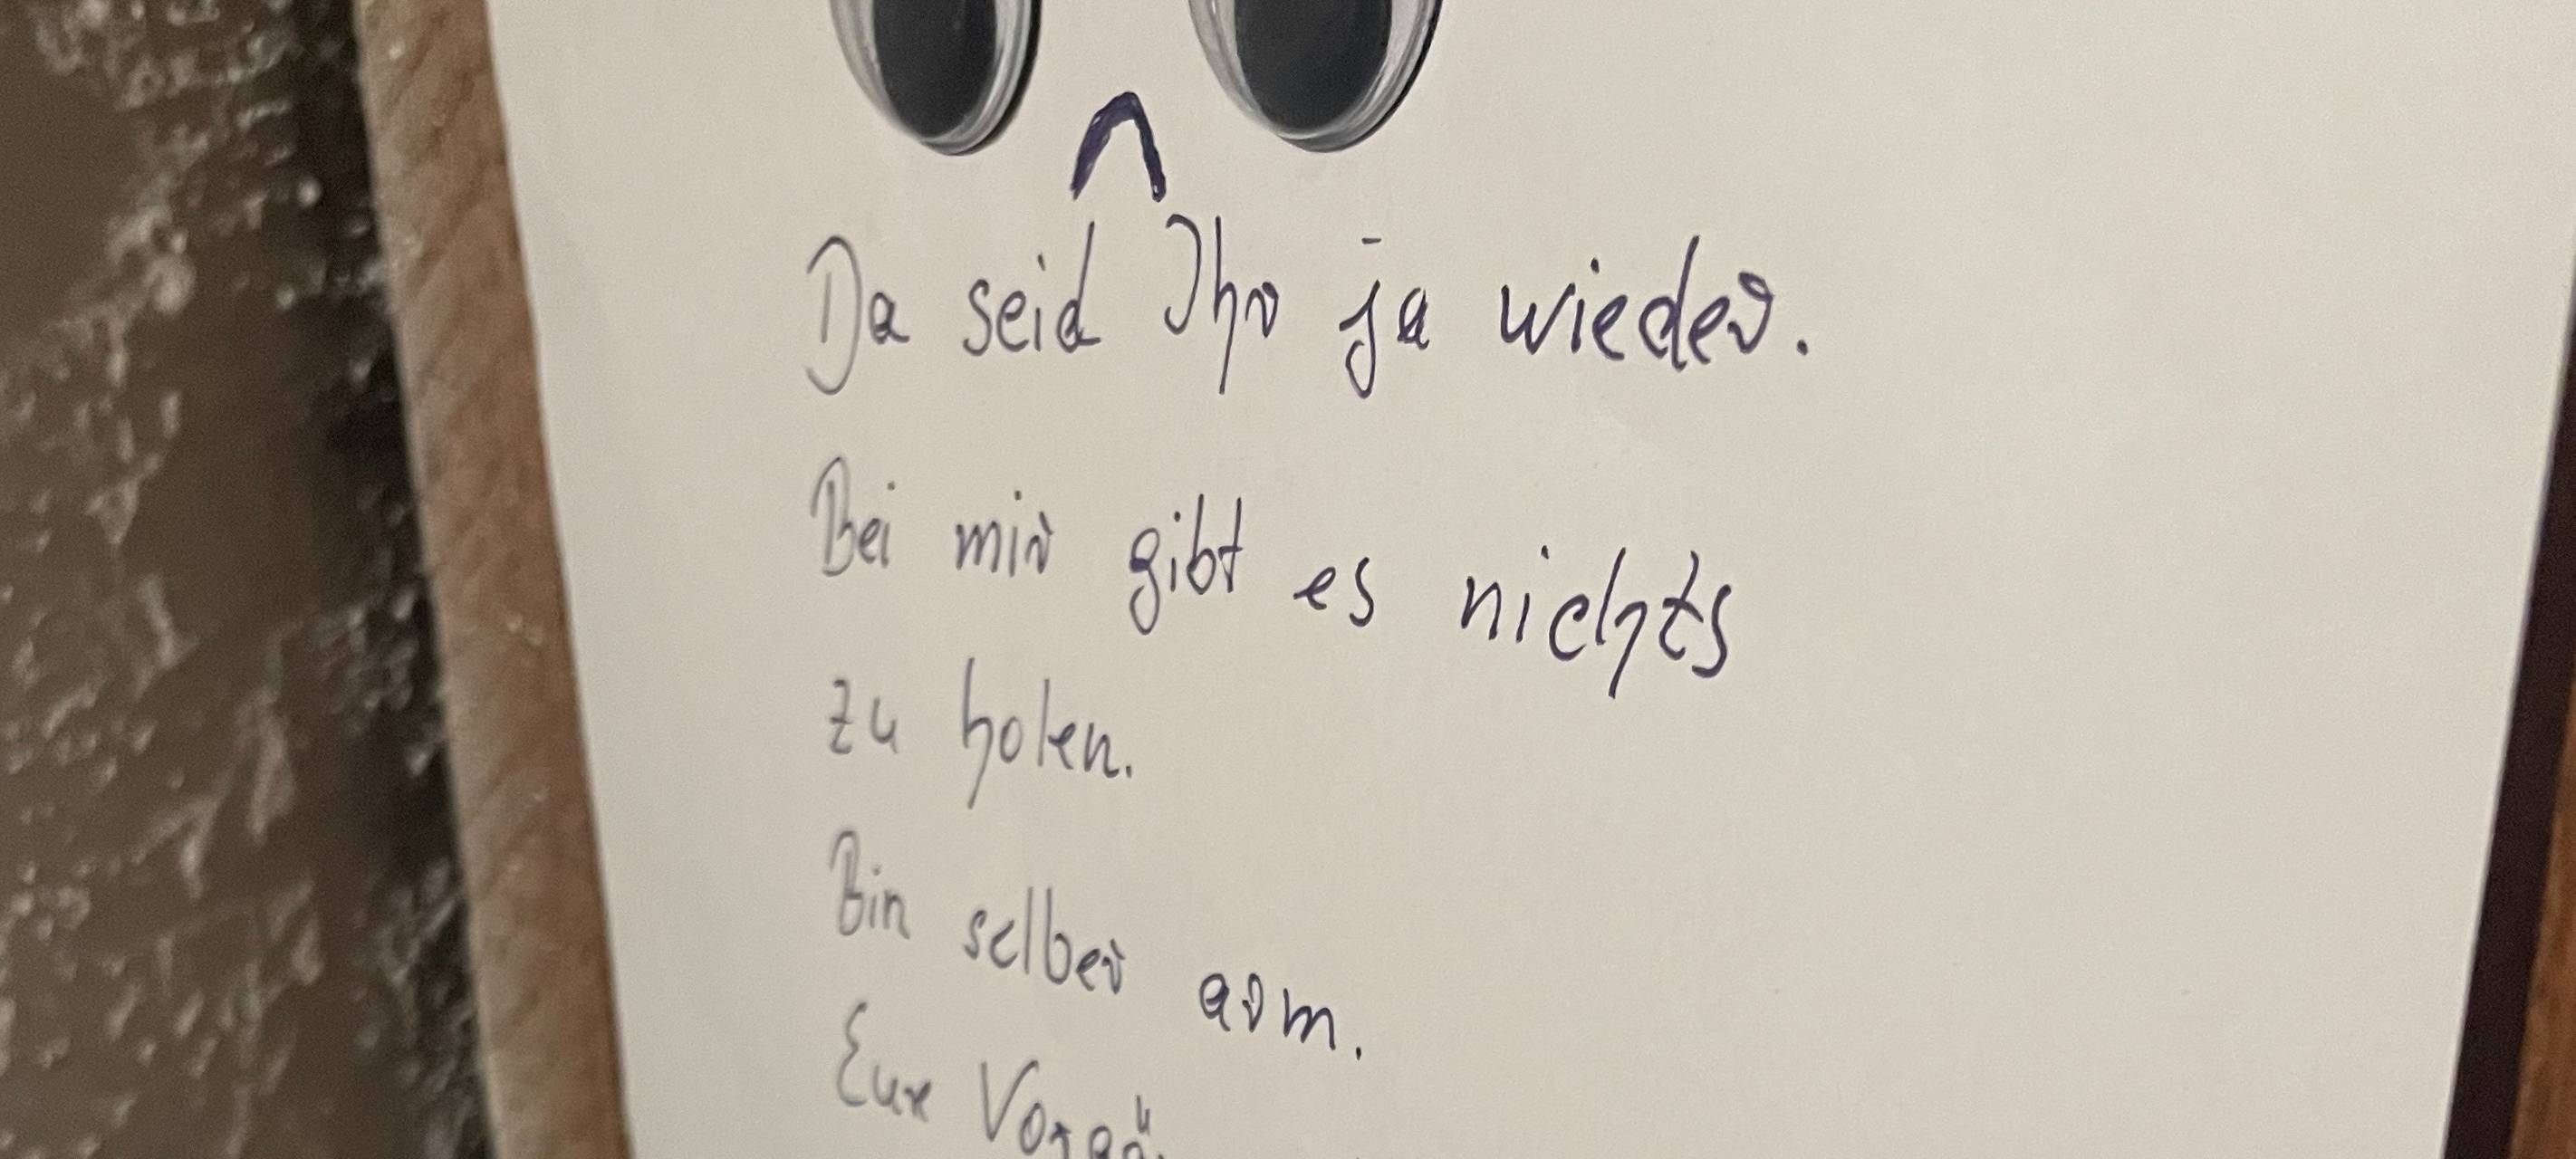 Da seid Ihr ja wieder.
Bei mir gibt es nichts
zu holen.
Bin selber arm.
Eure